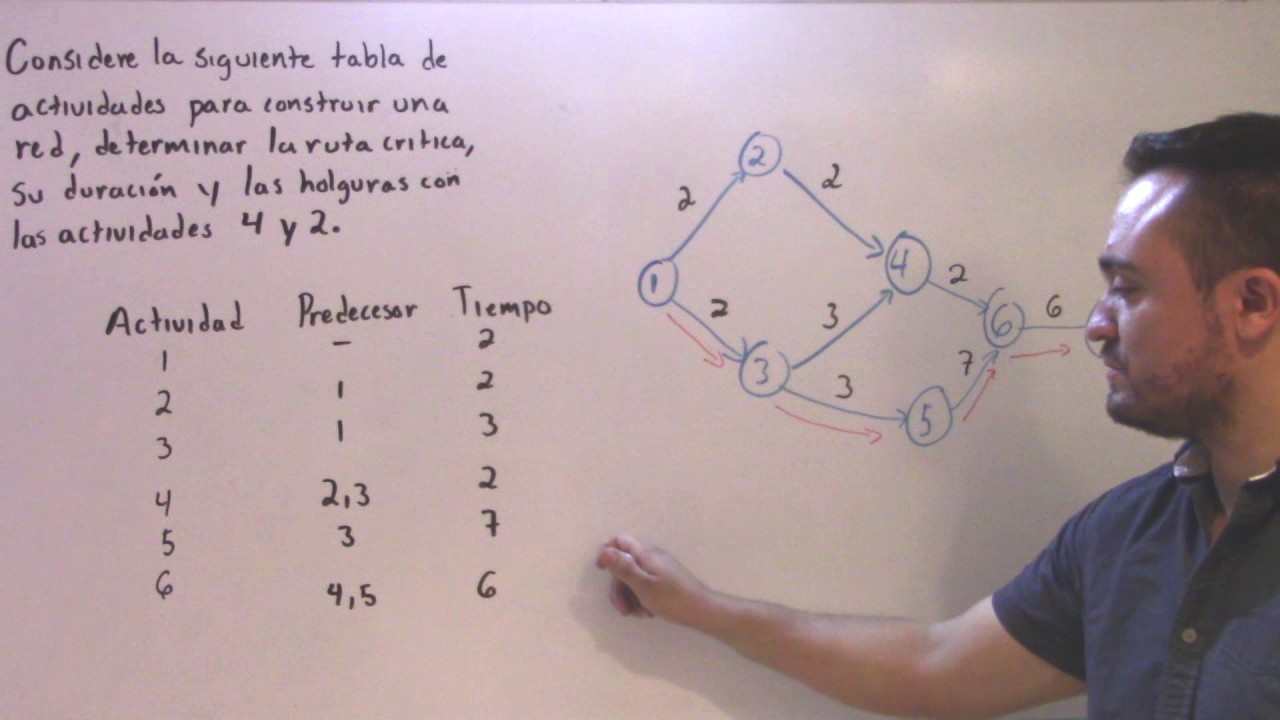 Considere la siguiente tabla de
actividades para construir una
red, determinar la ruta critica,
su duración y las holguras con
las actividades 4 y 2.
Actividad Predecesor Tiempo
1 – 2
2 1 2
3 1 3
4 2,3 2
5 3 7
6 4,5 6
2
2 2
4
1 2 2
3 6 6
3 3 7
5